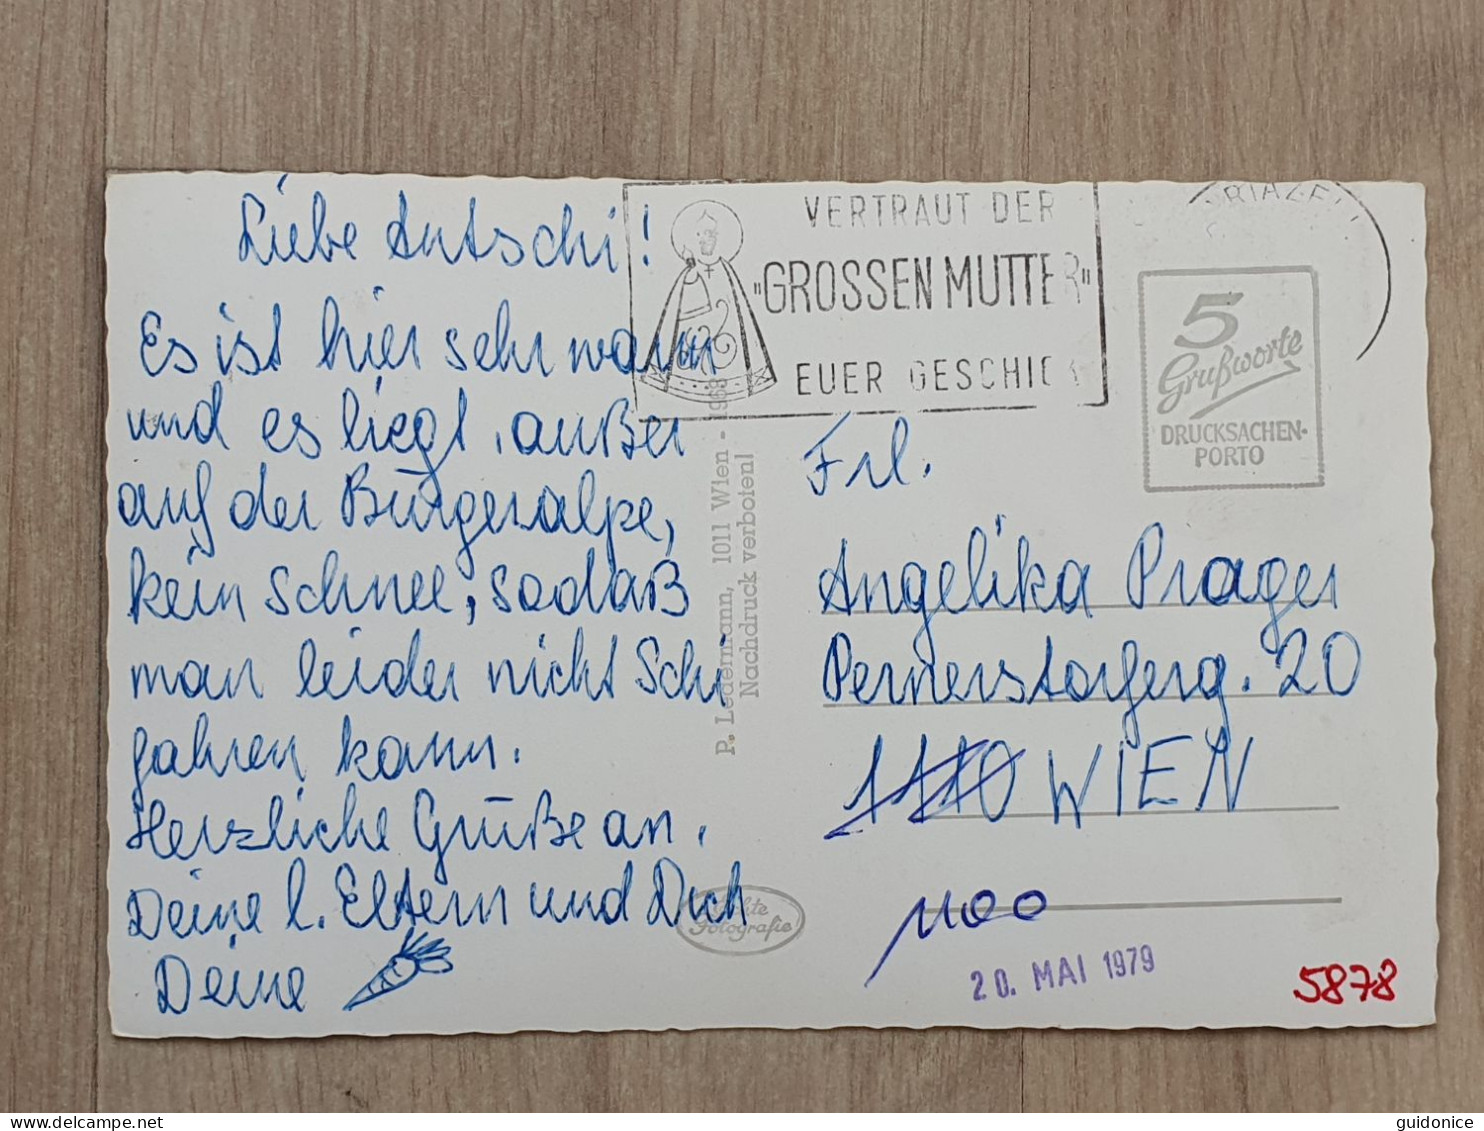 Liebe Antschi!
Es ist hier sehr warm
und es liegt, außer
auf der Bürgeralpe,
kein Schnee, sodaß
man leider nicht Schi
fahren kann.
Herzliche Grüße an
Deine l. Eltern und Dich
Deine
P. Ledermann, 1011 Wien - 1968
Nachdruck verboten!
Echte
Fotografie
VERTRAUT DER
"GROSSEN MUTTER"
EUER GESCHICK
5
Grußworte
DRUCKSACHEN-
PORTO
Frl.
Angelika Prager
Pernerstorferg. 20
1110 WIEN
1100
20. MAI 1979
5878
guidonice